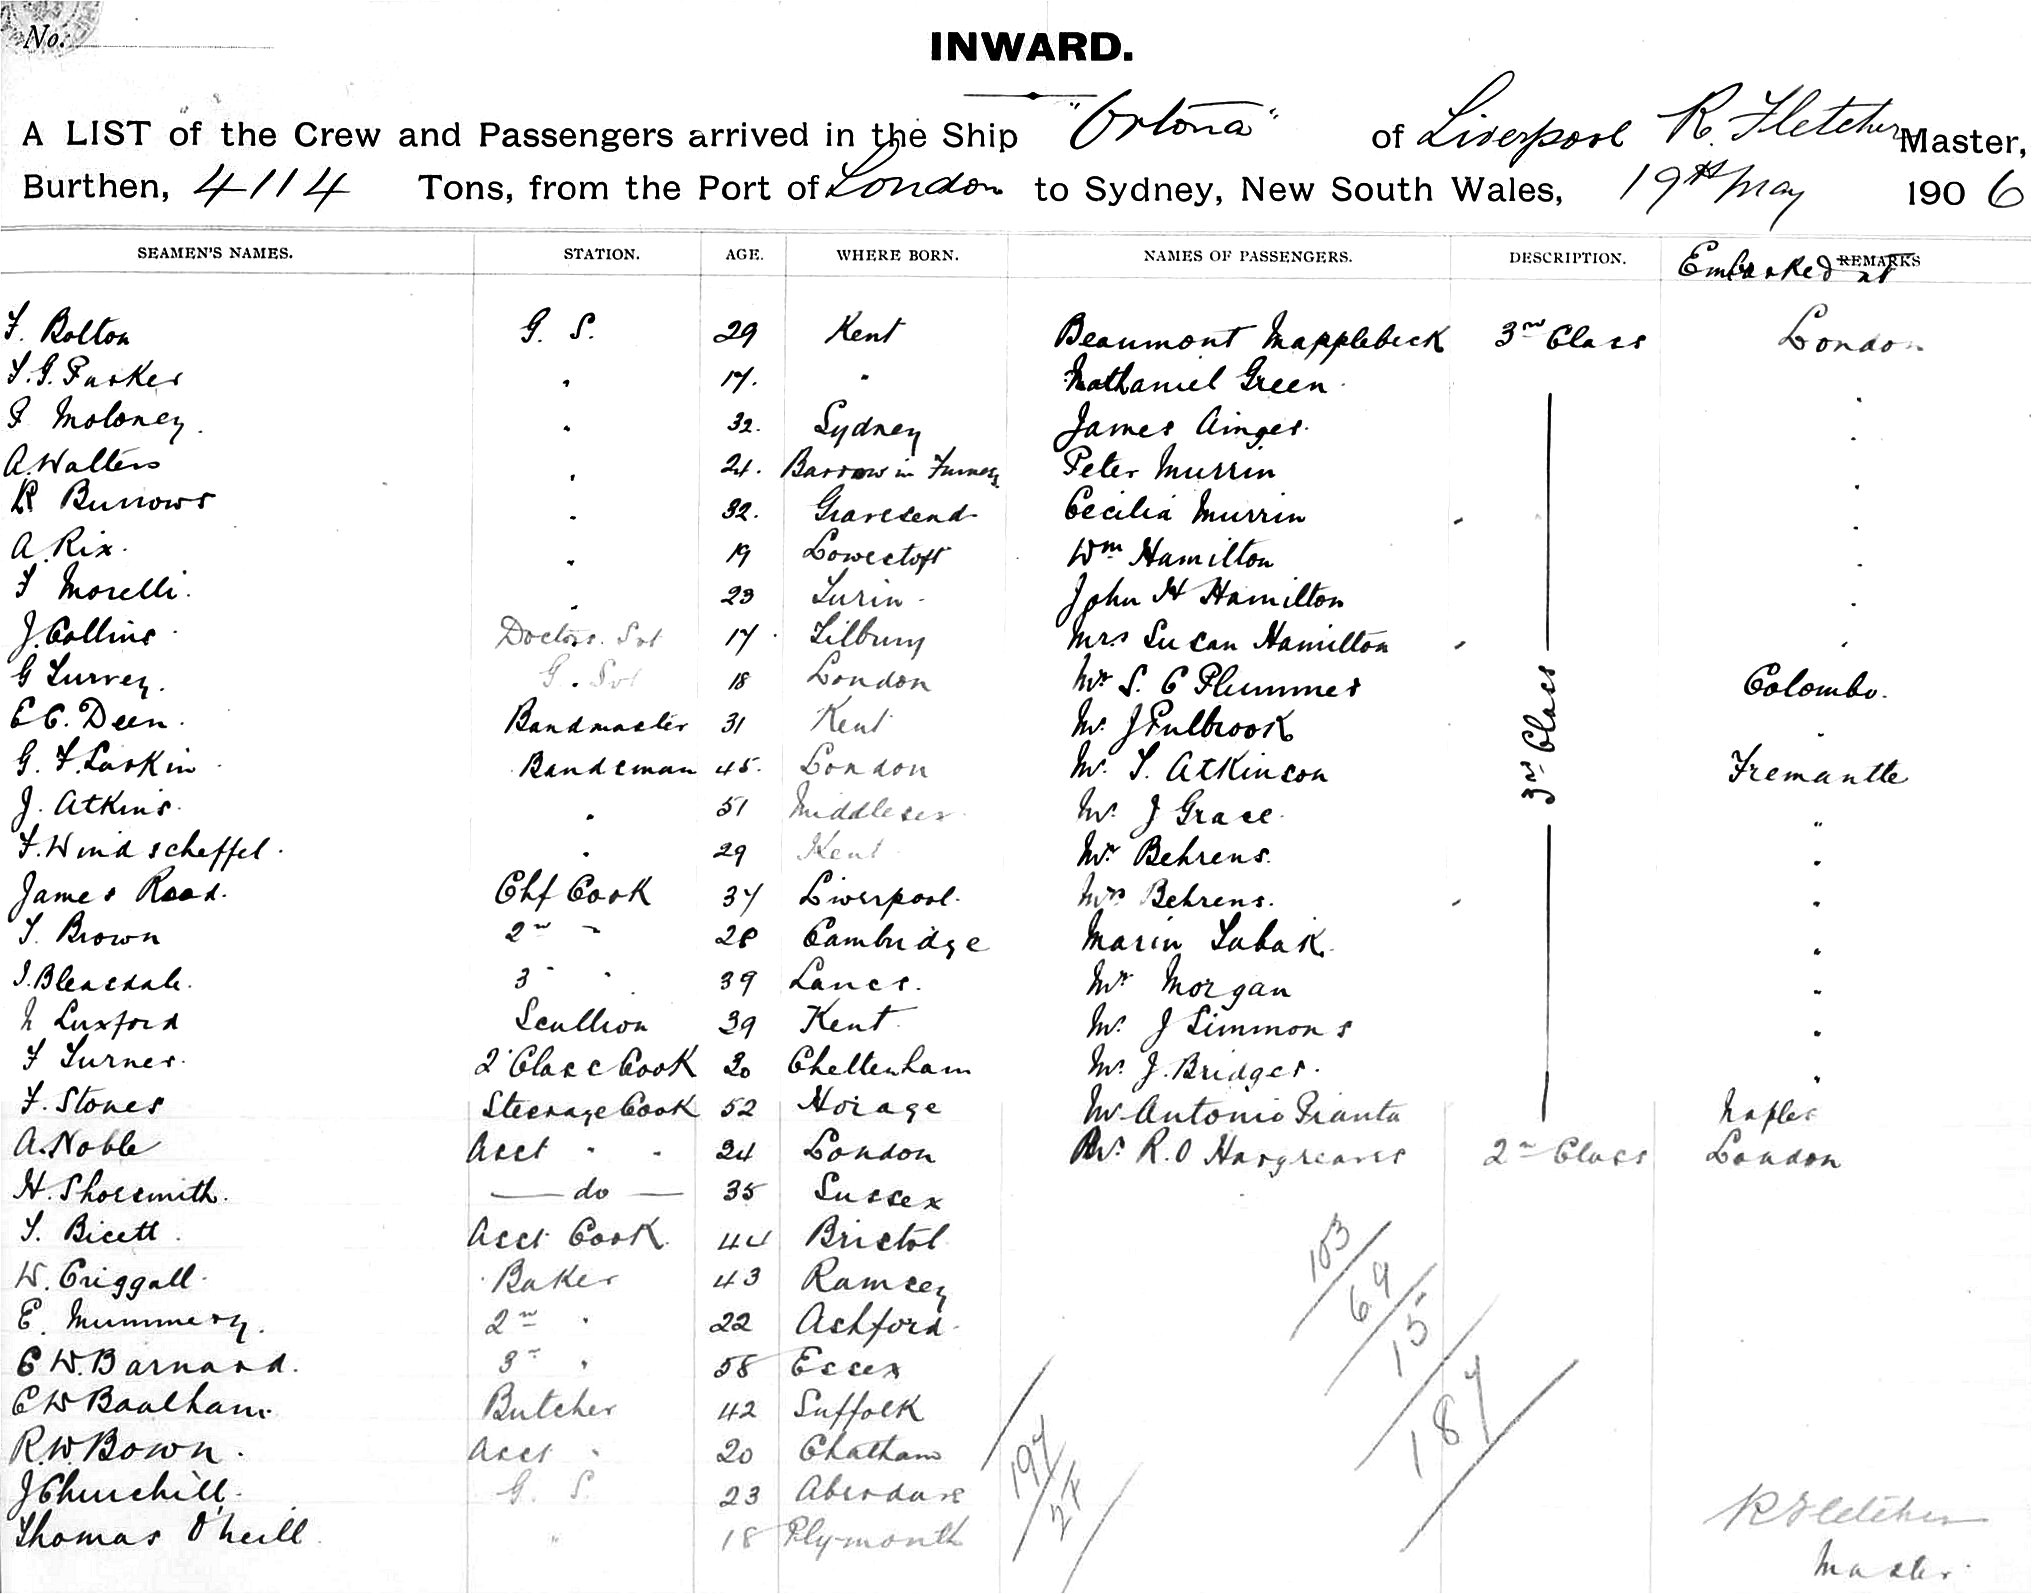 No.
INWARD.
A LIST of the Crew and Passengers arrived in the Ship "Ortona" of Liverpool R. Fletcher Master,
Burthen, 4114 Tons, from the Port of London to Sydney, New South Wales, 19th May 1906
SEAMEN'S NAMES. STATION. AGE. WHERE BORN. NAMES OF PASSENGERS. DESCRIPTION. REMARKS Embarked at
F. Bolton G. S. 29 Kent Beaumont Mapplebeck 3rd Class London
T. G. Parker " 17. " Nathaniel Green "
F Moloney. " 32. Sydney James Ainges. "
A. Walters " 24. Barrow in Furness Peter Murrin "
R Burrows " 32. Gravesend Cecilia Murrin "
A. Rix. " 19 Lowestoft Wm Hamilton "
F Morelli. " 23 Turin. John H Hamilton "
J. Collins. Doctors. Svt 17 Tilbury Mrs Susan Hamilton "
G Turvey. G. Svt 18 London Mr S. C Plummer Colombo.
E C. Deen. Bandmaster 31 Kent Mr. J Fulbrook "
G. F. Larkin Bandsman 45. London Mr. T. Atkinson 3rd Class Fremantle
J. Atkins. " 51 Middlesex. Mr. J Grace. "
F. Windscheffel. " 29 Kent. Mr. Behrens. "
James Read. Chf Cook 37 Liverpool. Mrs Behrens. "
T. Brown 2nd " 28 Cambridge Marin Tabak. "
J. Bleasdale. 3 " 39 Lancs. Mr Morgan "
N Luxford Scullion 39 Kent. Mr. J Simmons "
F Turner. 2 Class Cook 20 Cheltenham Mr. J. Bridges. "
F. Stones Steerage Cook 52 Mr. Antonio Pianta Naples
A. Noble Asst " " 24 London Mr. R. O Hargreaves 2nd Class London
H. Shoesmith. — do — 35 Sussex
T. Bicett. Asst Cook. 44 Bristol
W. Criggall. Baker 43 Ramsey
E. Mummery. 2nd " 22 Ashford.
C W. Barnard. 3rd " 58 Essex
C W Baalham. Butcher 42 Suffolk
R. W. Bown. Asst " 20 Chatham
J Churchill. G. S. 23 Aberdare
Thomas O'Neill. " 18 Plymouth
103
69
15
187
197
R Fletcher
Master.